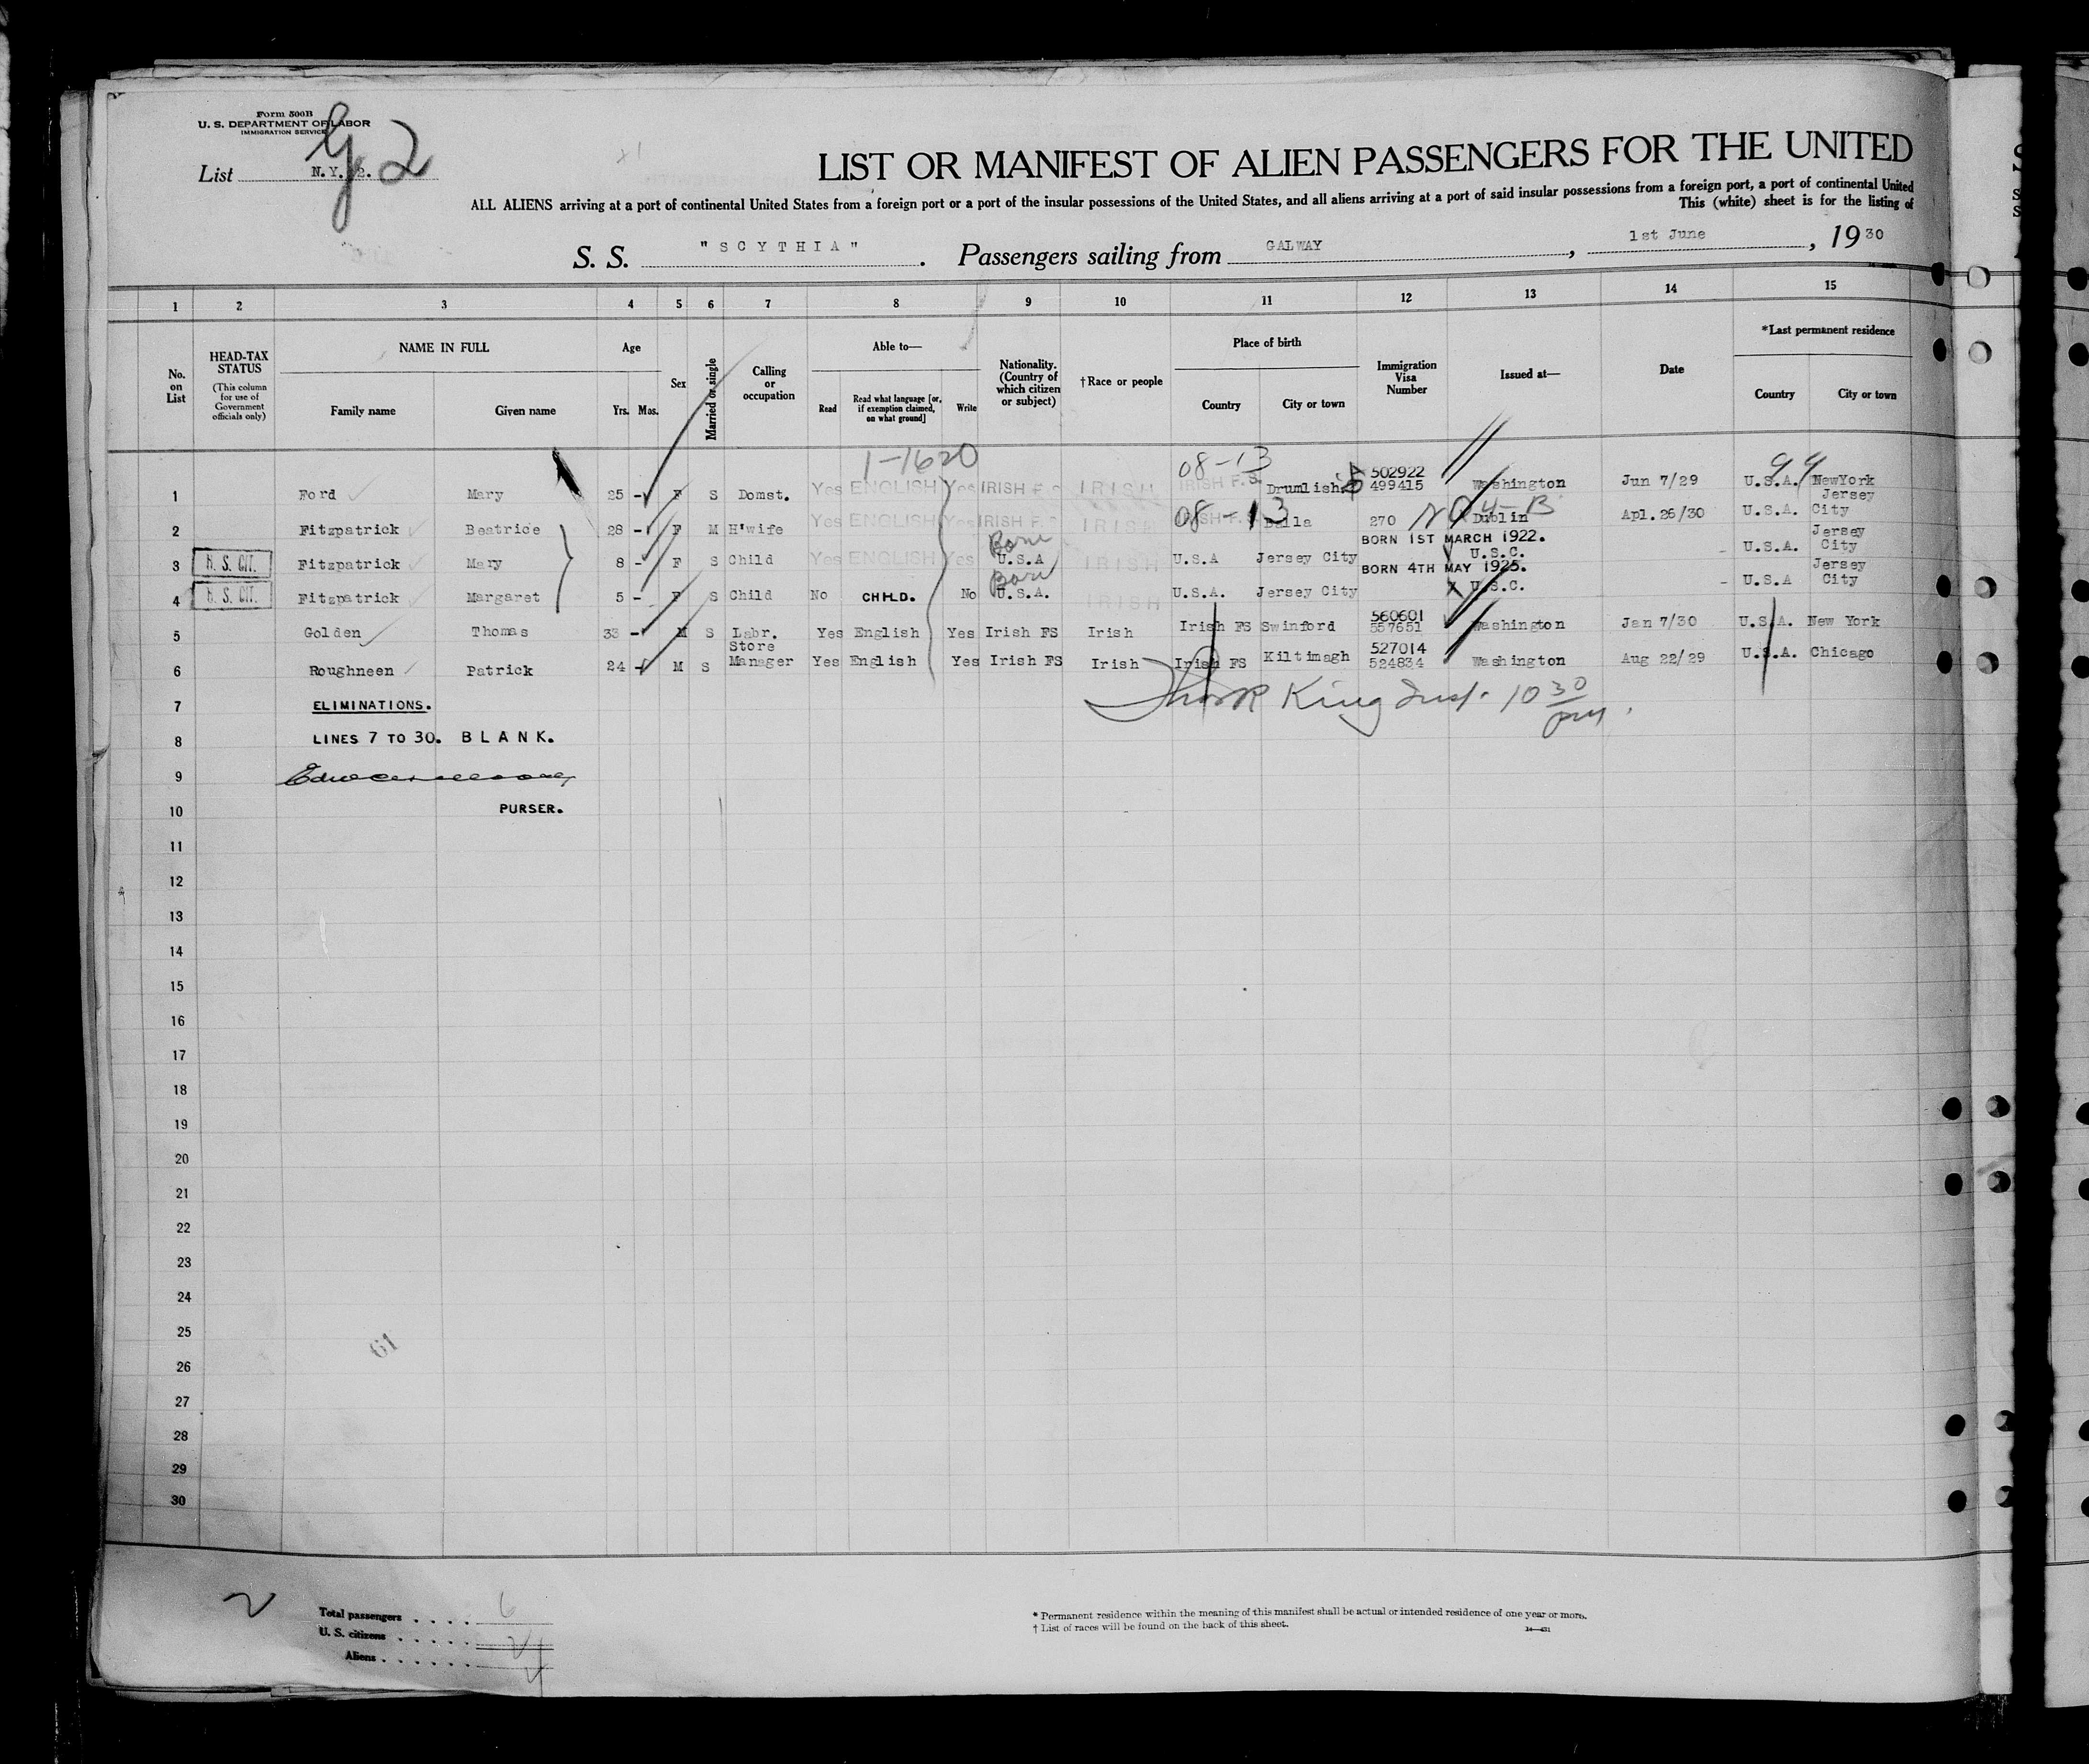 Form 500B
U. S. DEPARTMENT OF LABOR
IMMIGRATION SERVICE
G 2
List N.Y. 2.
LIST OR MANIFEST OF ALIEN PASSENGERS FOR THE UNITED
ALL ALIENS arriving at a port of continental United States from a foreign port or a port of the insular possessions of the United States, and all aliens arriving at a port of said insular possessions from a foreign port, a port of continental United
This (white) sheet is for the listing of
S. S. "SCYTHIA". Passengers sailing from GALWAY, 1st June, 1930
1 2 3 4 5 6 7 8 9 10 11 12 13 14 15
No. on List
HEAD-TAX STATUS (This column for use of Government officials only)
NAME IN FULL Family name Given name
Age Yrs. Mos.
Sex
Married or single
Calling or occupation
Able to— Read Read what language [or, if exemption claimed, on what ground] Write
Nationality. (Country of which citizen or subject)
†Race or people
Place of birth Country City or town
Immigration Visa Number
Issued at—
Date
*Last permanent residence Country City or town
1-1620 08-13 99
1 Ford Mary 25 - F S Domst. Yes ENGLISH Yes IRISH F.S. IRISH IRISH F.S. Drumlish 502922 499415 Washington Jun 7/29 U.S.A. NewYork
08-13
2 Fitzpatrick Beatrice 28 - F M H'wife Yes ENGLISH Yes IRISH F.S. IRISH IRISH F.S. Balla 270 Dublin Apl.26/30 U.S.A. Jersey City
BORN 1ST MARCH 1922.
3 U.S. CIT. Fitzpatrick Mary 8 - F S Child Yes ENGLISH Yes Born U.S.A IRISH U.S.A Jersey City U.S.C. U.S.A. Jersey City
BORN 4TH MAY 1925.
4 U.S. CIT. Fitzpatrick Margaret 5 - F S Child No CHILD. No Born U.S.A. IRISH U.S.A. Jersey City U.S.C. U.S.A Jersey City
5 Golden Thomas 33 - M S Labr. Yes English Yes Irish FS Irish Irish FS Swinford 560601 557651 Washington Jan 7/30 U.S.A. New York
6 Roughneen Patrick 24 - M S Store Manager Yes English Yes Irish FS Irish Irish FS Kiltimagh 527014 524834 Washington Aug 22/29 U.S.A. Chicago
7 ELIMINATIONS. King Insp. 10 30 pm.
8 LINES 7 TO 30. BLANK.
9
10 PURSER.
11
12
13
14
15
16
17
18
19
20
21
22
23
24
25
61
26
27
28
29
30
2
Total passengers . . . . 6
U. S. citizens . . . . . 2
Aliens . . . . . . 4
* Permanent residence within the meaning of this manifest shall be actual or intended residence of one year or more.
† List of races will be found on the back of this sheet.